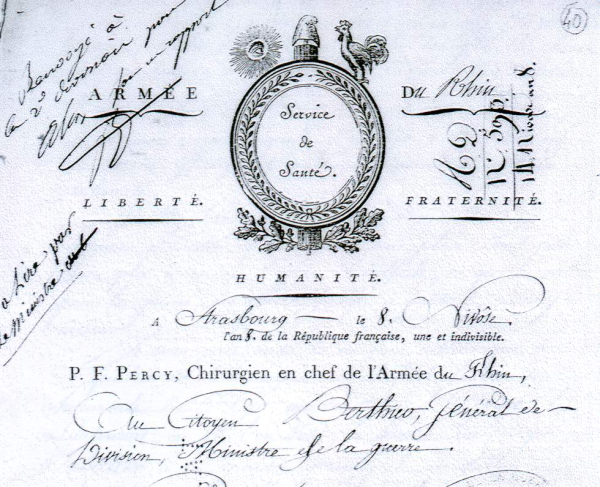 40
Renvoyé à
la 2e division pour
un rapport
ARMÉE Du Rhin
Service
de
Santé.
LIBERTÉ. FRATERNITÉ.
HUMANITÉ.
à lire par
le Ministre
A Strasbourg le 8. Nivôse
l'an 8. de la République française, une et indivisible.
P. F. PERCY, Chirurgien en chef de l'Armée du Rhin,
Au Citoyen Berthier, Général de
Division, Ministre de la guerre.